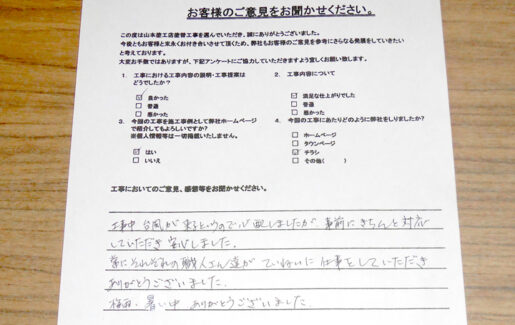 お客様のご意見をお聞かせください。
この度は山本塗工店塗替工事を選んでいただき、誠にありがとうございました。
今後ともお客様と末永くお付き合いさせて頂くため、弊社もお客様のご意見を参考にさらなる発展をしていきたい
と考えております。
大変お手数ではありますが、下記アンケートにご協力していただきますよう宜しくお願い致します。
1. 工事における工事内容の説明・工事提案は
どうでしたか?
良かった
普通
悪かった
2. 工事内容について
満足な仕上がりでした
普通
悪かった
3. 今回の工事を施工事例として弊社ホームページ
で紹介してもよろしいですか?
※個人情報等は一切掲載いたしません。
はい
いいえ
4. 今回の工事にあたりどのように弊社をしりましたか?
ホームページ
タウンページ
チラシ
その他( )
工事においてのご意見、感想等をお聞かせください。
工事中 台風が来るというので心配しましたが、事前にきちんと対応
していただき安心しました。
常にそれぞれの職人さん達が ていねいに仕事をしていただき
ありがとうございました。
梅雨、暑い中 ありがとうございました。